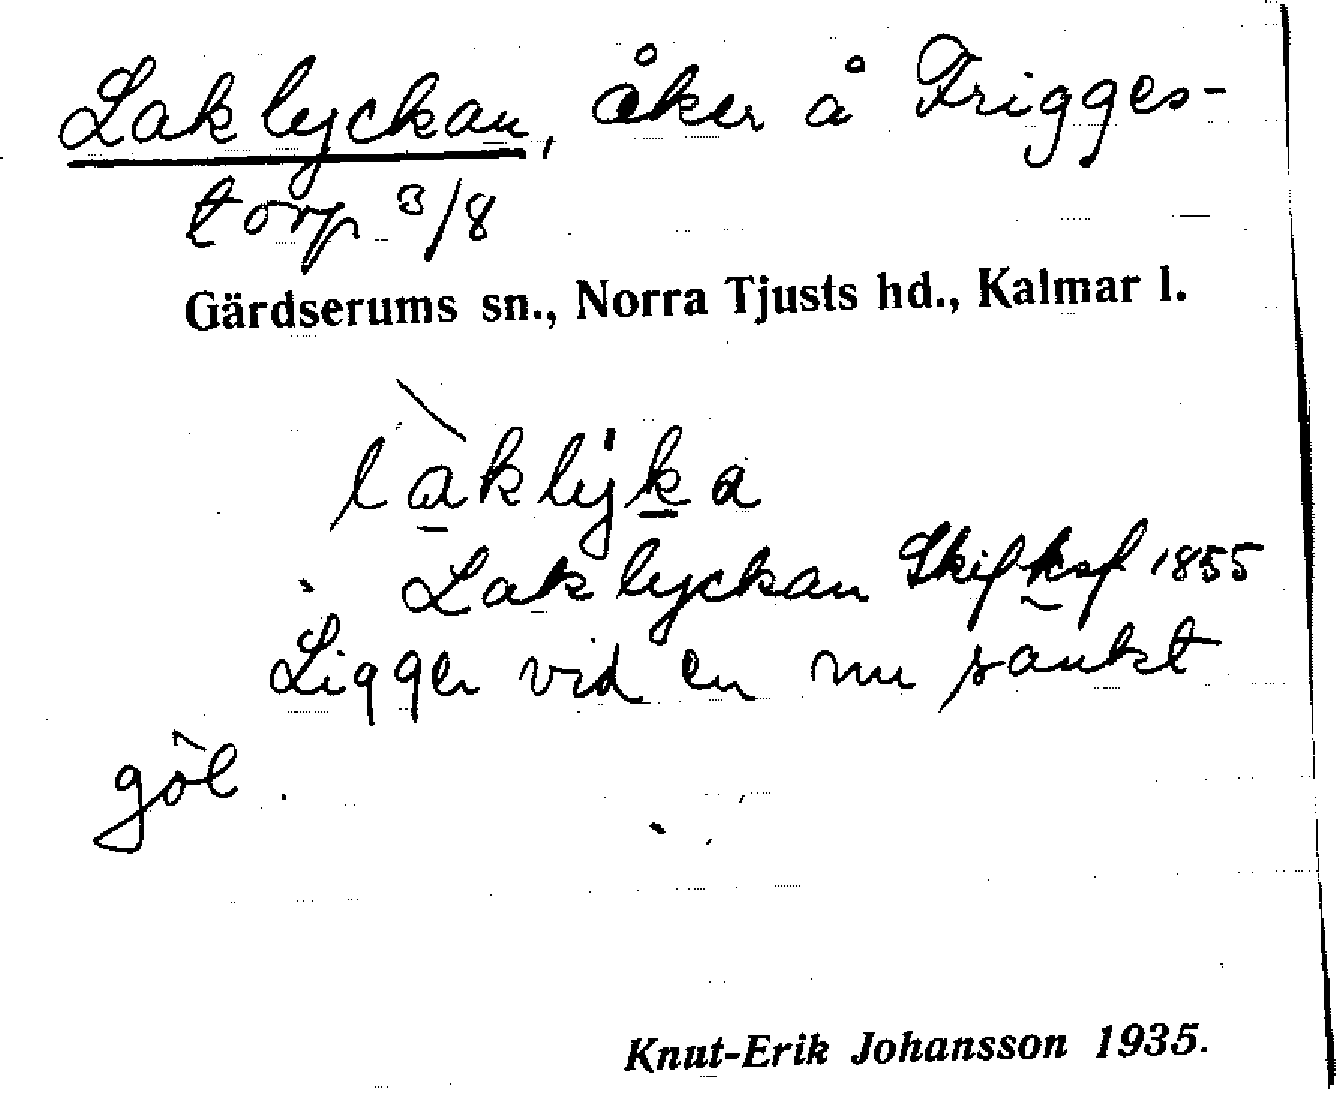 Laklyckan, åker å Frigges-
torp 3/8
Gärdserums sn., Norra Tjusts hd., Kalmar l.
làklyka
Laklyckan Skifksf 1855
Ligger vid en nu sankt
göl.
Knut-Erik Johansson 1935.